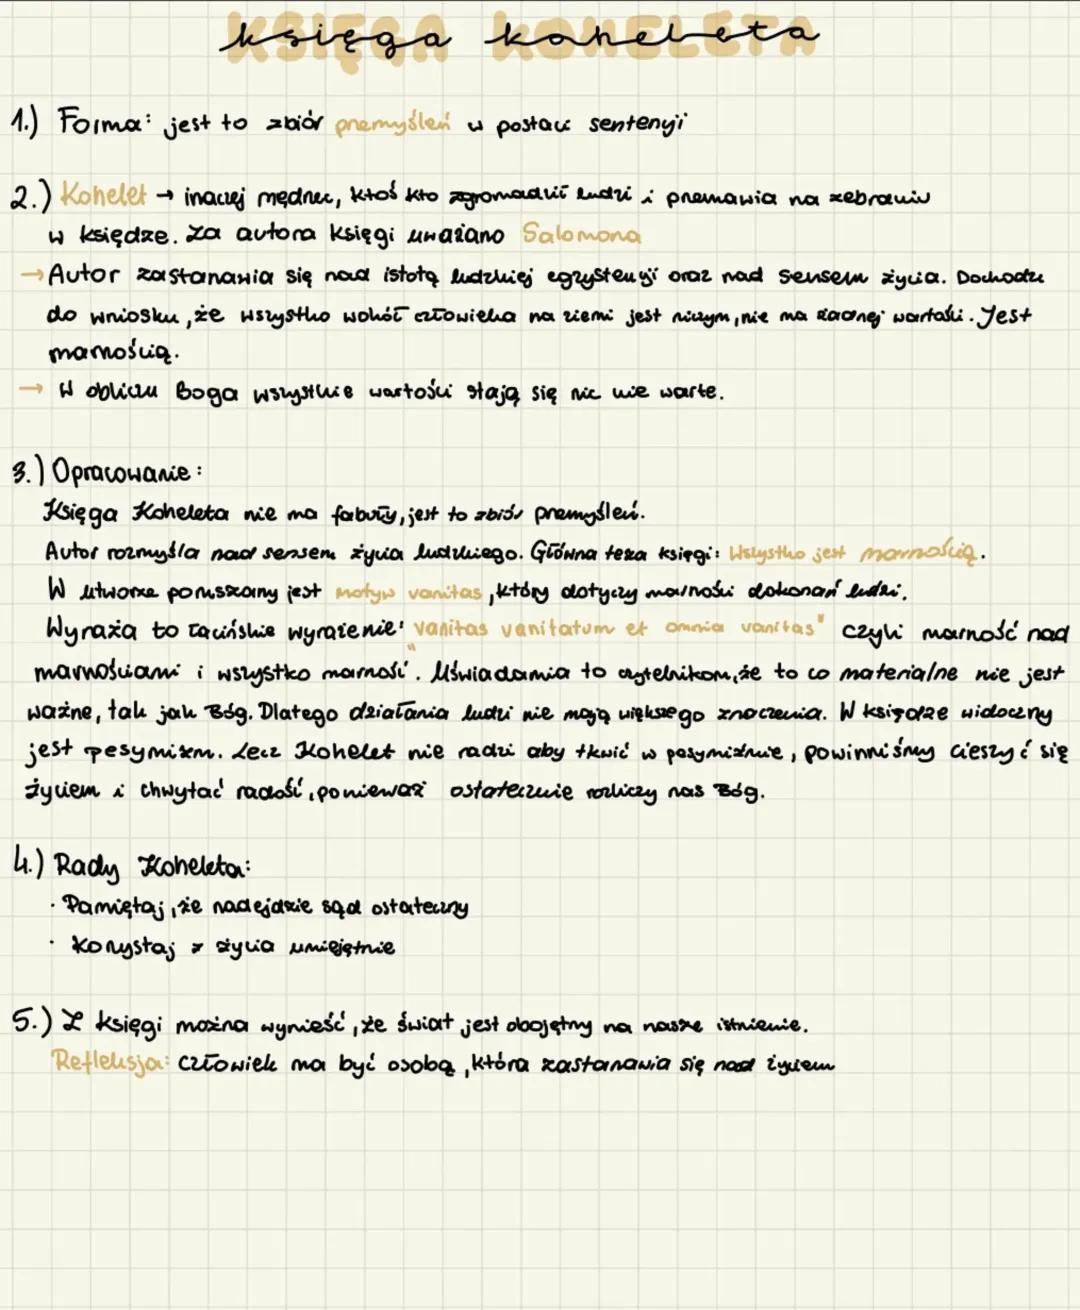 księga koheleta
1.) Forma: jest to zbiór przemyśleń w postaci sentencji
2.) Kohelet → inaczej mędrzec, ktoś kto zgromadził ludzi i przemawia na zebraniu
w księdze. Za autora Księgi uważano Salomona
→ Autor zastanawia się nad istotą ludzkiej egzystencji oraz nad sensem życia. Dochodzi
do wniosku, że wszystko wokół człowieka na ziemi jest niczym, nie ma żadnej wartości. Jest
marnością.
→ W obliczu Boga wszystkie wartości stają się nic nie warte.
3.) Opracowanie:
Księga Koheleta nie ma fabuły, jest to zbiór przemyśleń.
Autor rozmyśla nad sensem życia ludzkiego. Główna teza księgi: Wszystko jest marnością.
W utworze poruszany jest motyw vanitas, który dotyczy marności dokonań ludzi.
Wyraża to łacińskie wyrażenie: "vanitas vanitatum et omnia vanitas" czyli marność nad
marnościami i wszystko marność. Uświadamia to czytelnikom, że to co materialne nie jest
ważne, tak jak Bóg. Dlatego działania ludzi nie mają większego znaczenia. W księdze widoczny
jest pesymizm. Lecz Kohelet nie radzi aby tkwić w pesymizmie, powinniśmy cieszyć się
życiem i chwytać radość, ponieważ ostatecznie rozliczy nas Bóg.
4.) Rady Koheleta:
· Pamiętaj, że nadejdzie sąd ostateczny
· Korzystaj z życia umiejętnie
5.) Z księgi można wynieść, że świat jest obojętny na nasze istnienie.
Refleksja: człowiek ma być osobą, która zastanawia się nad życiem